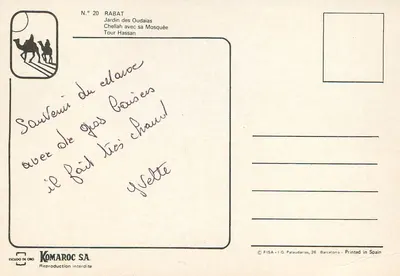 N.° 20 RABAT
Jardin des Oudaias
Chellah avec sa Mosquée
Tour Hassan
Souvenir du Maroc
avec de gros baisers
il fait très chaud
Yvette
KOMAROC S.A.
Reproduction interdite
Printed in Spain